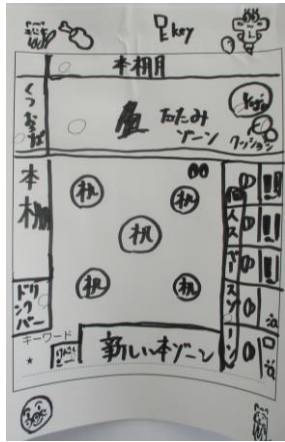 key
本棚
くつおきば
たたみ
ゾーン
クッション
本棚
机
机
机
机
机
個人スペースゾーン
ドリンクバー
キーワード
新しい本ゾーン